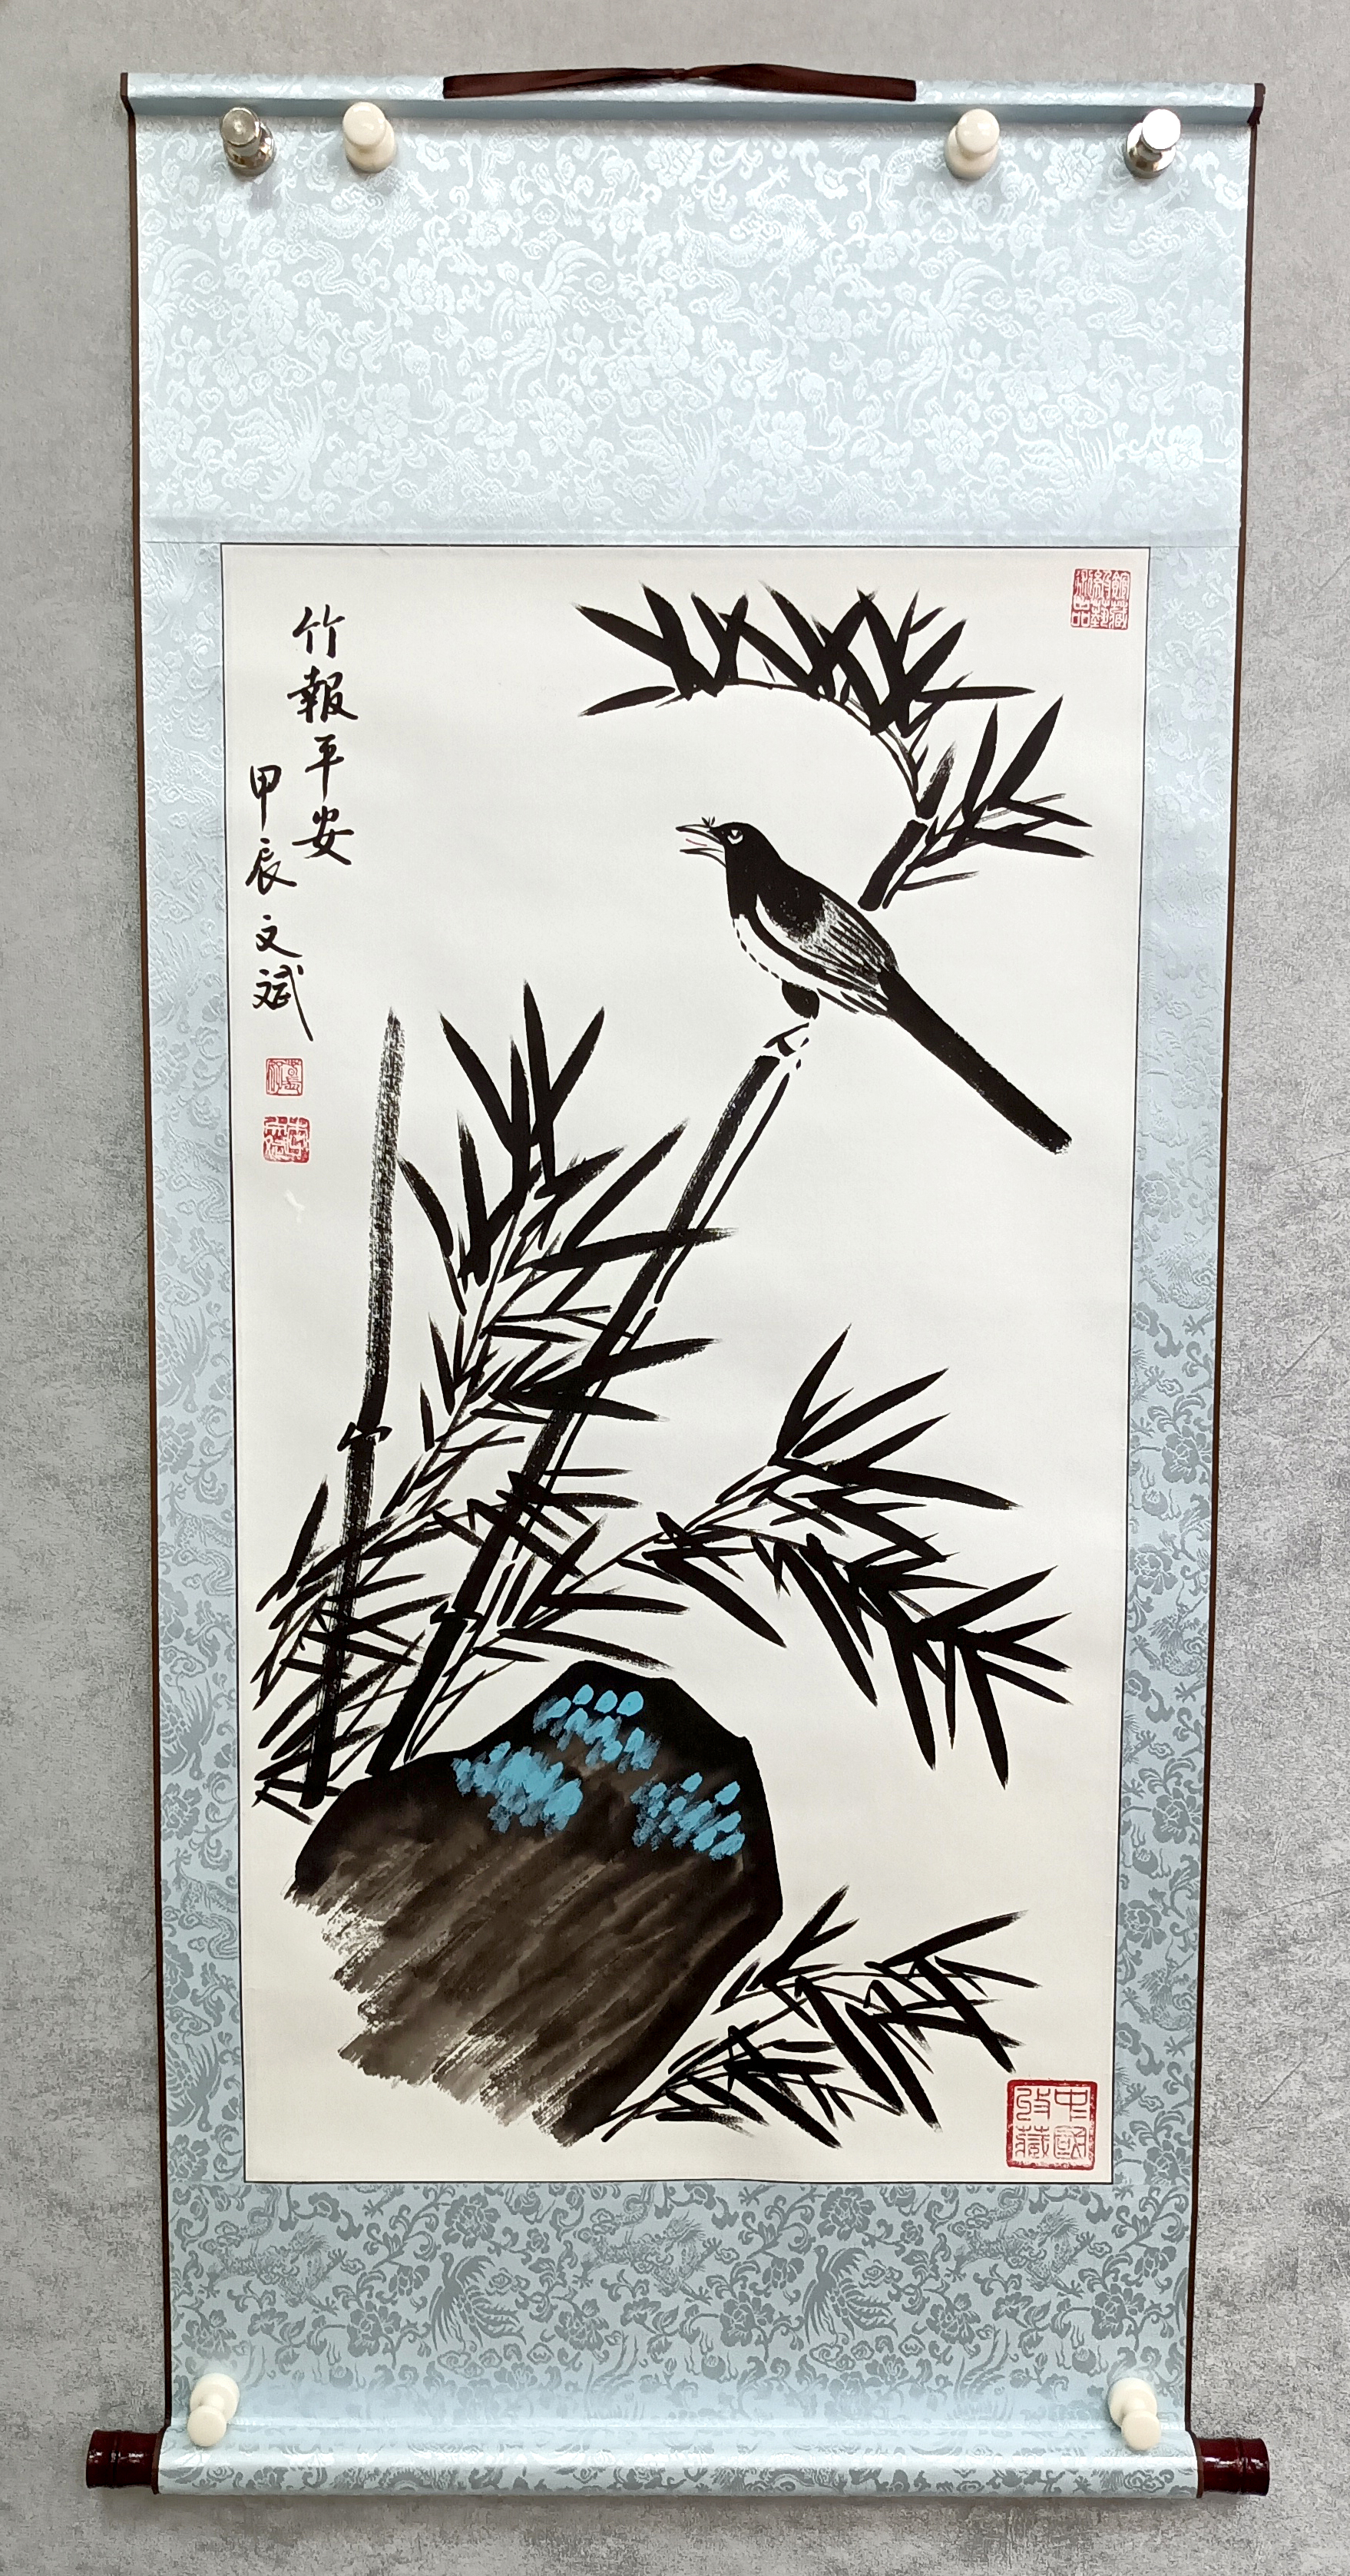 竹報平安
甲辰文斌
中國收藏